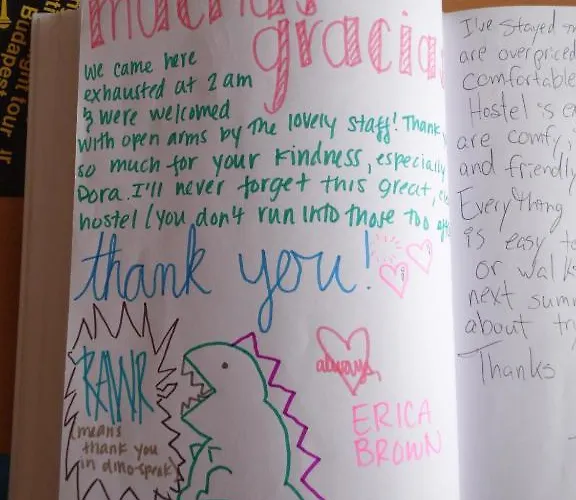 muchas
gracias
We came here
exhausted at 2 am
& were welcomed
with open arms by the lovely staff! Thank
so much for your kindness, especially
Dora. I'll never forget this great,
hostel (you don't run into those too
thank you!
RAWR
(means
thank you
in dino-speak)
always,
ERICA
BROWN
I've stayed
are overpriced
comfortable
Hostel is
are comfy,
and friendly
Everything
is easy to
or walk
next
about
Thanks
Budapest